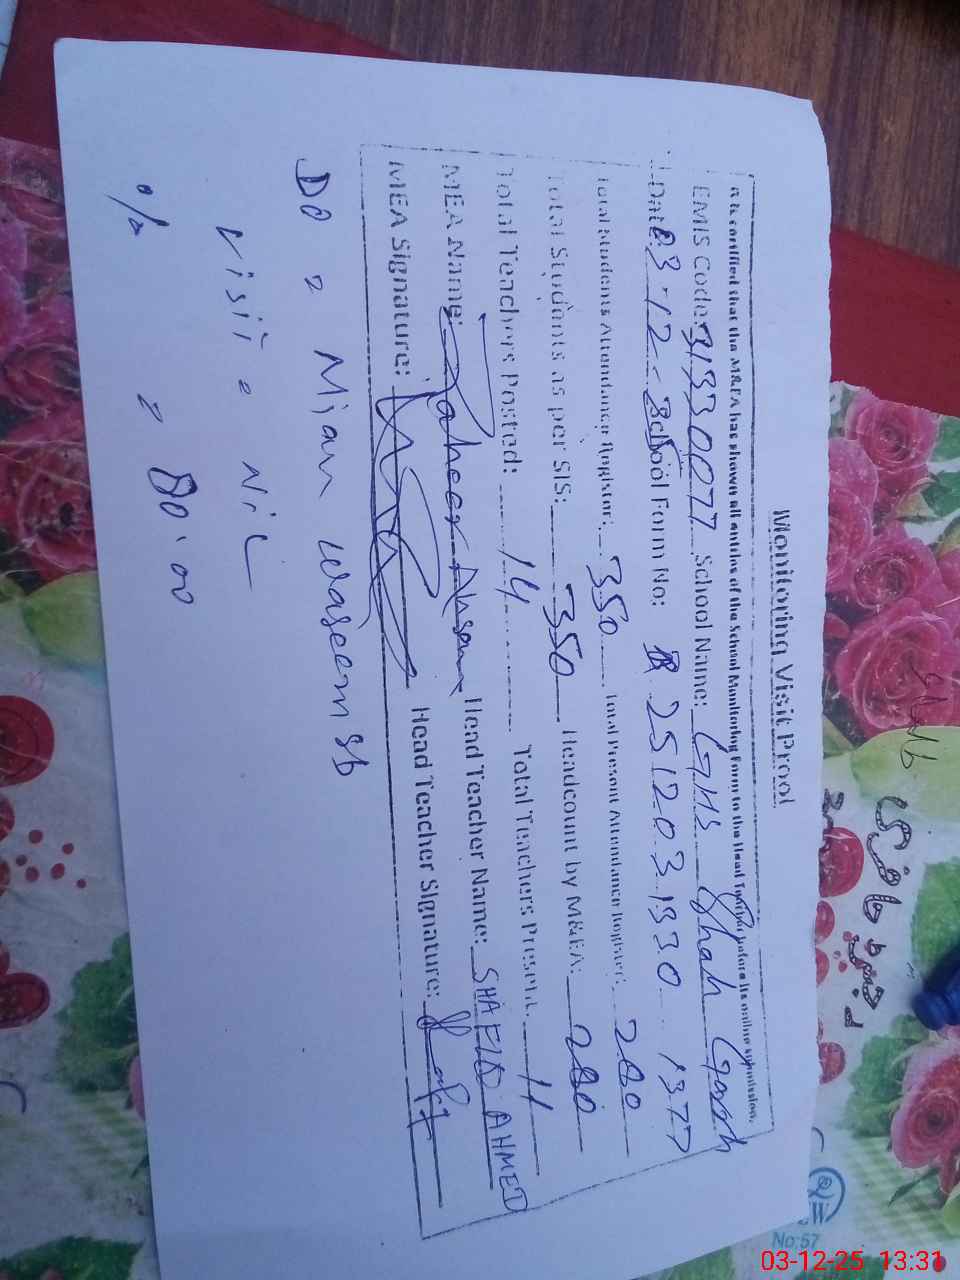 Monitoring Visit Proof
It is certified that the M&EA has shown all entries of the School Monitoring Form to the Head Teacher before its online submission.
EMIS Code: 31330077 School Name: GHS Shah Garh
Date: 03-12- School Form No: 251203 1330 1377
Total Students Attendance Register: 350 Total Present Attendance Register: 280
Total Students as per SIS: 350 Headcount by M&EA: 280
Total Teachers Posted: 14 Total Teachers Present: 11
MEA Name: Taheer Ahsan Head Teacher Name: SHAFIQ AHMED
MEA Signature: Head Teacher Signature:
DO = Mian Waseem sb
Visit = Nil
% = 80.00
No:57
03-12-25 13:31